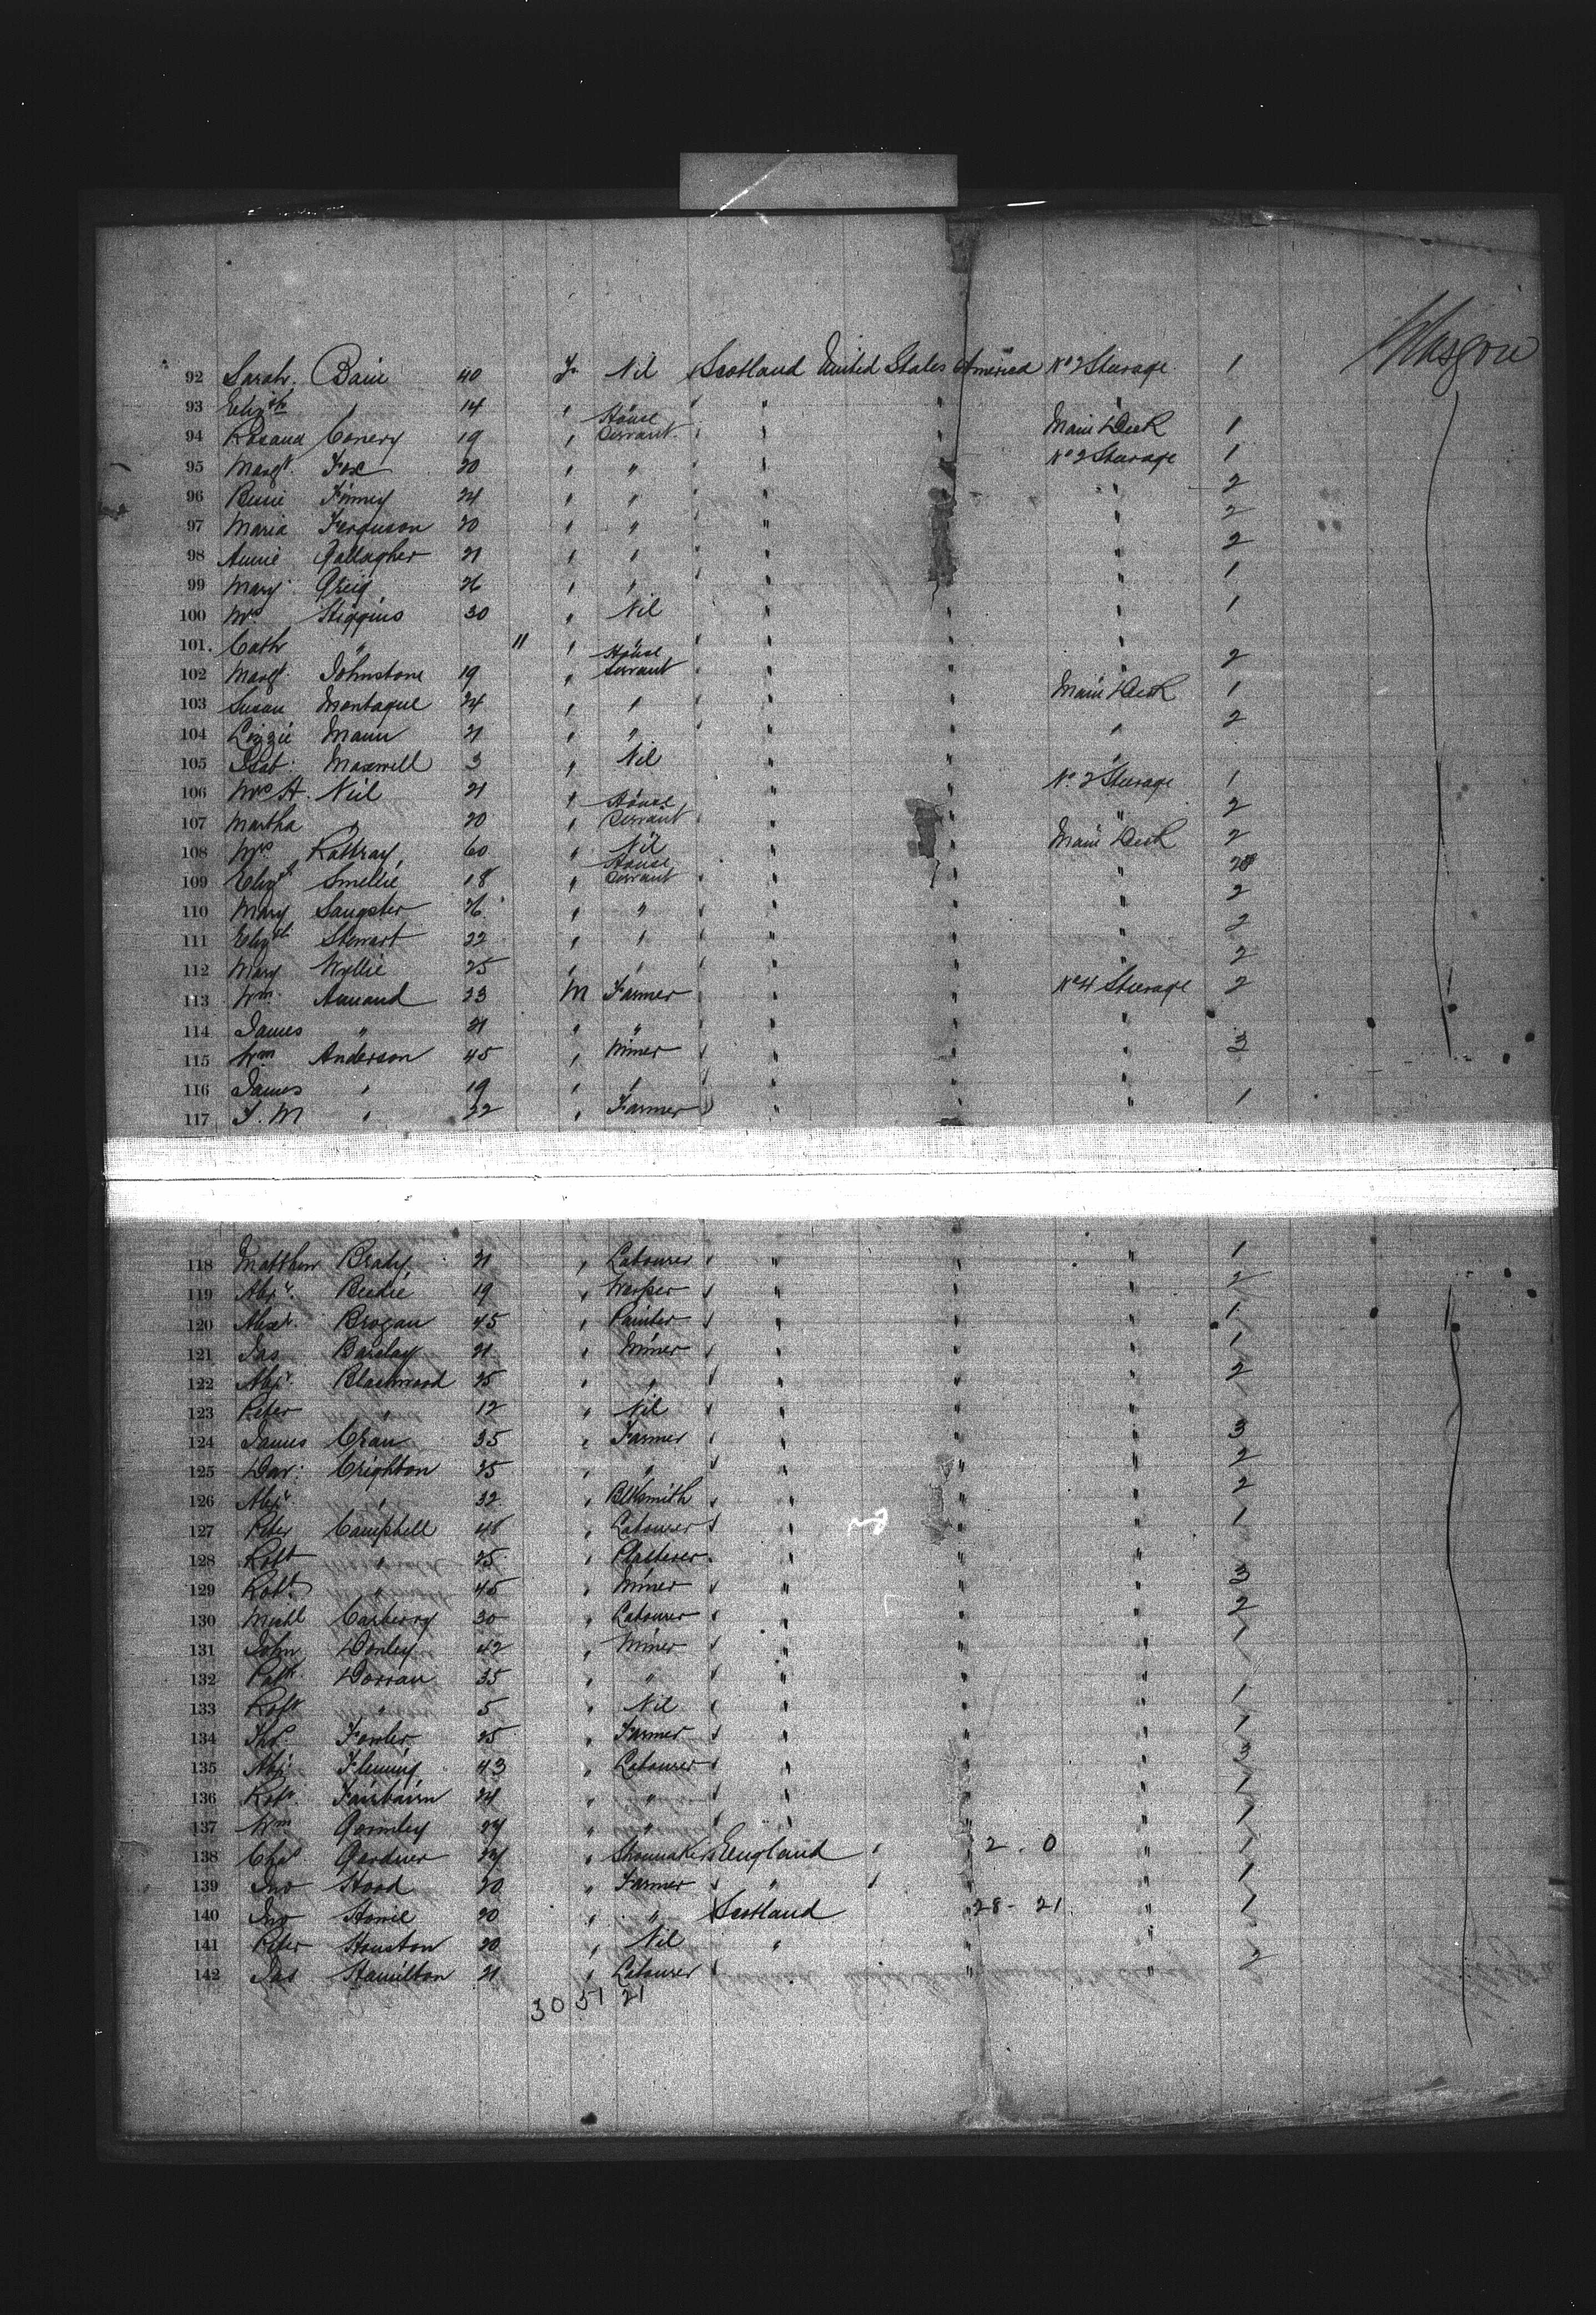 Glasgow
92 Sarah Bain 40 F Nil Scotland United States America No 2 Steerage 1
93 Elizth " 14 " " " " "
94 Rosana Conery 19 " House Servant " " Main Deck 1
95 Margt. Fox 20 " " " " No 2 Steerage 1
96 Bessie Finney 24 " " " " " 2
97 Maria Ferguson 20 " " " " " 2
98 Annie Gallagher 21 " " " " " 2
99 Mary Greig 26 " " " " " 1
100 Mrs Higgins 30 " Nil " " " 1
101. Cath " 11 " " " "
102 Margt. Johnstone 19 " House Servant " " " 2
103 Susan Montague 24 " " " " Main Deck 1
104 Lizzie Mann 21 " " " " " 2
105 Isab: Maxwell 3 " Nil " " "
106 Mrs A. Neil 21 " " " No. 2 Steerage 1
107 Martha " 20 " House Servant " " " 2
108 Mrs Rattray 60 " Nil " " Main Deck 2
109 Elizth Smellie 18 " House Servant " " "
110 Mary Sangster 26 " " " " " 2
111 Elizth Stewart 22 " " " " " 2
112 Mary Wyllie 25 " " " " " 2
113 Wm. Annand 23 M Farmer " " No 4 Steerage 2
114 James " 21 " " " " "
115 Wm Anderson 45 " Miner " " " 3
116 James " 19 " " " " "
117 J. M " 22 " Farmer " " " 1
118 Matthew Brady 21 " Labourer " " " 1
119 Alexr. Beedie 19 " Warper " " " 2
120 Alexr. Brogan 45 " Painter " " " 1
121 Jas Barclay 21 " Miner " " " 1
122 Alexr. Blackwood 25 " " " " " 2
123 Peter " 12 " Nil " " "
124 James Cran 35 " Farmer " " " 3
125 Dav: Crighton 25 " " " " " 2
126 Alexr " 32 " Blksmith " " " 2
127 Peter Campbell 48 " Labourer " " " 1
128 Robt " 25 " Plasterer " " "
129 Robt. " 45 " Miner " " " 3
130 Michl Carberry 30 " Labourer " " " 2
131 John Donley 42 " Miner " " " 1
132 Patk Dorran 35 " " " " "
133 Robt " 5 " Nil " " " 1
134 Thos. Fowler 25 " Farmer " " " 1
135 Alexr Fleming 43 " Labourer " " " 3
136 Robt. Fairbairn 24 " " " " " 1
137 Wm Gormley 27 " " " " " 1
138 Chas. Gardner 24 " Shoemaker England " 2 . 0 " 1
139 Jno Hood 20 " Farmer " " " " 1
140 Jno Howie 20 " " Scotland 28 - 21 " 1
141 Peter Houston 20 " Nil " " "
142 Jas Hamilton 21 " Labourer " " " 2
30 51 21